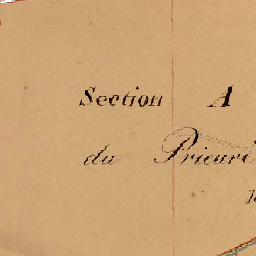 Section A
du Prieuré